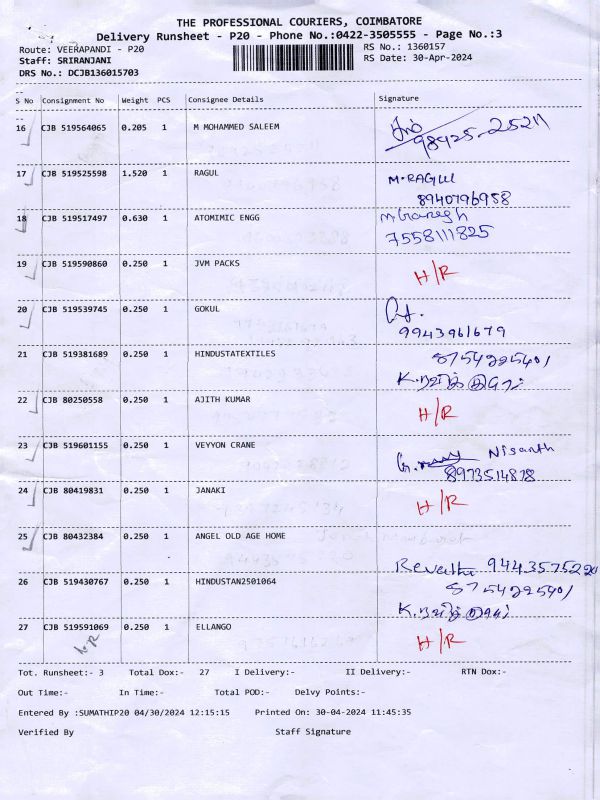 THE PROFESSIONAL COURIERS, COIMBATORE
Delivery Runsheet - P20 - Phone No.:0422-3505555 - Page No.:3
Route: VEERAPANDI - P20 RS No.: 1360157
Staff: SRIRANJANI RS Date: 30-Apr-2024
DRS No.: DCJB136015703
S No Consignment No Weight PCS Consignee Details Signature
16 CJB 519564065 0.205 1 M MOHAMMED SALEEM
98425-25211
17 CJB 519525598 1.520 1 RAGUL M.RAGUL
8940796958
18 CJB 519517497 0.630 1 ATOMIMIC ENGG M Ganesh
7558111825
19 CJB 519590860 0.250 1 JVM PACKS H/R
20 CJB 519539745 0.250 1 GOKUL
9943961679
21 CJB 519381689 0.250 1 HINDUSTATEXTILES 8754225401
22 CJB 80250558 0.250 1 AJITH KUMAR H/R
23 CJB 519601155 0.250 1 VEYYON CRANE Nisanth
8973514878
24 CJB 80419831 0.250 1 JANAKI H/R
25 CJB 80432384 0.250 1 ANGEL OLD AGE HOME
Revathi 9443575220
26 CJB 519430767 0.250 1 HINDUSTAN2501064 8754225401
27 CJB 519591069 0.250 1 ELLANGO H/R
H/R
Tot. Runsheet:- 3 Total Dox:- 27 I Delivery:- II Delivery:- RTN Dox:-
Out Time:- In Time:- Total POD:- Delvy Points:-
Entered By :SUMATHIP20 04/30/2024 12:15:15 Printed On: 30-04-2024 11:45:35
Verified By Staff Signature